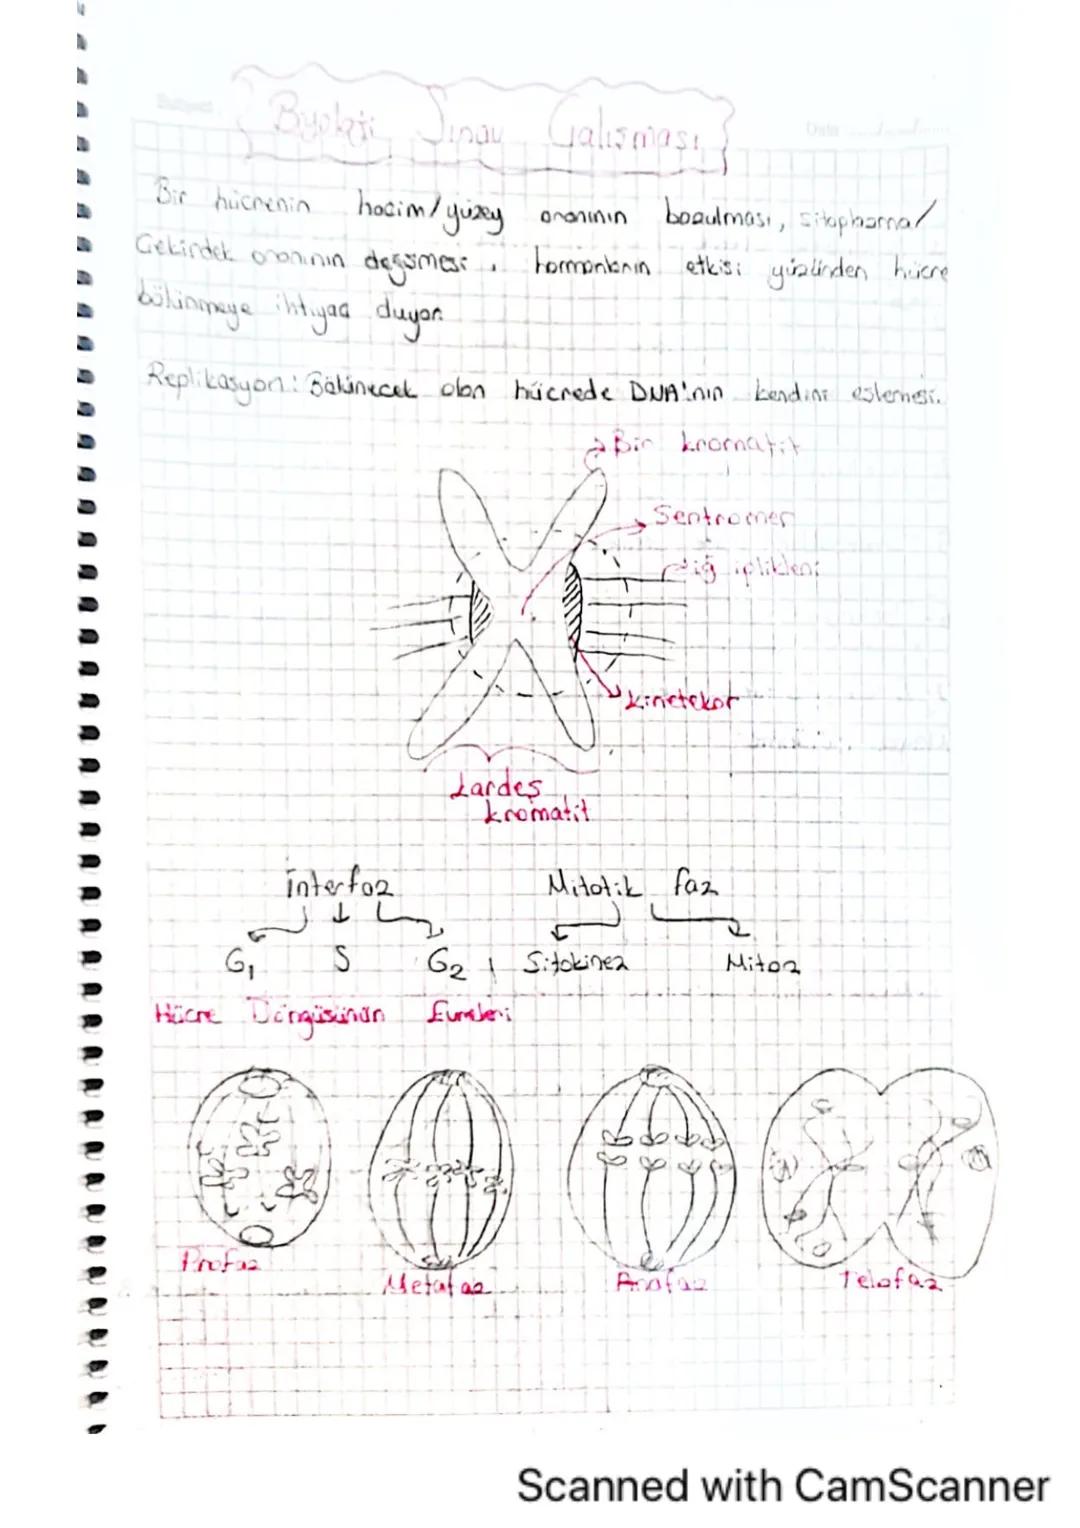 Byoloji Sınav Çalışması
Bir hücrenin hacim/yüzey oranının bozulması, sitoplazma/
Çekirdek oranının değişmesi, hormonların etkisi yüzünden hücre
bölünmeye ihtiyaç duyar.
Replikasyon: Bölünecek olan hücrede DNA'nın kendini eşlemesi.
Bir kromatit
Sentromer
iğ iplikleri
kinetekor
kardeş
kromatit
İnterfaz Mitotik faz
G1 S G2 Sitokinez Mitoz
Hücre Döngüsünün Evreleri
Profaz
Metafaz
Anafaz
Telofaz
Scanned with CamScanner